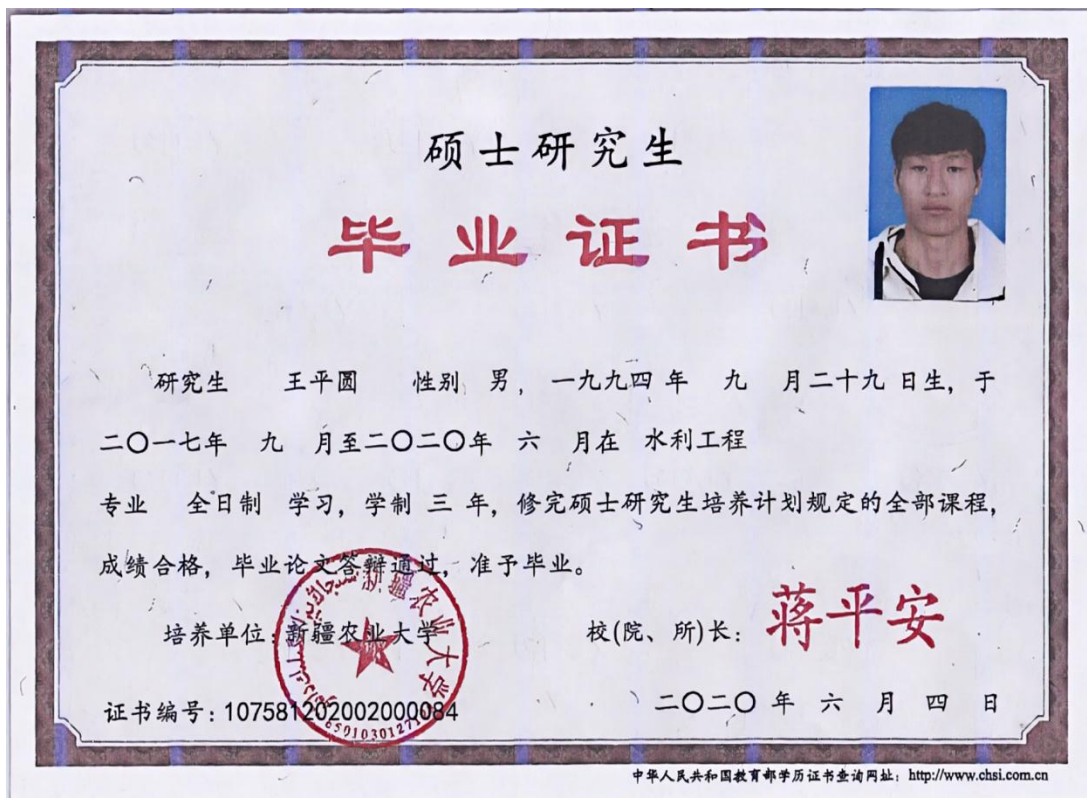 硕士研究生
毕业证书
研究生 王平圆 性别 男, 一九九四 年 九 月二十九 日生, 于
二〇一七年 九 月至二〇二〇年 六 月在 水利工程
专业 全日制 学习, 学制 三 年, 修完硕士研究生培养计划规定的全部课程,
成绩合格, 毕业论文答辩通过, 准予毕业。
新疆农业大学
培养单位: 新疆农业大学
校(院、所)长: 蒋平安
证书编号: 107581202002000084
二〇二〇 年 六 月 四 日
中华人民共和国教育部学历证书查询网址: http://www.chsi.com.cn